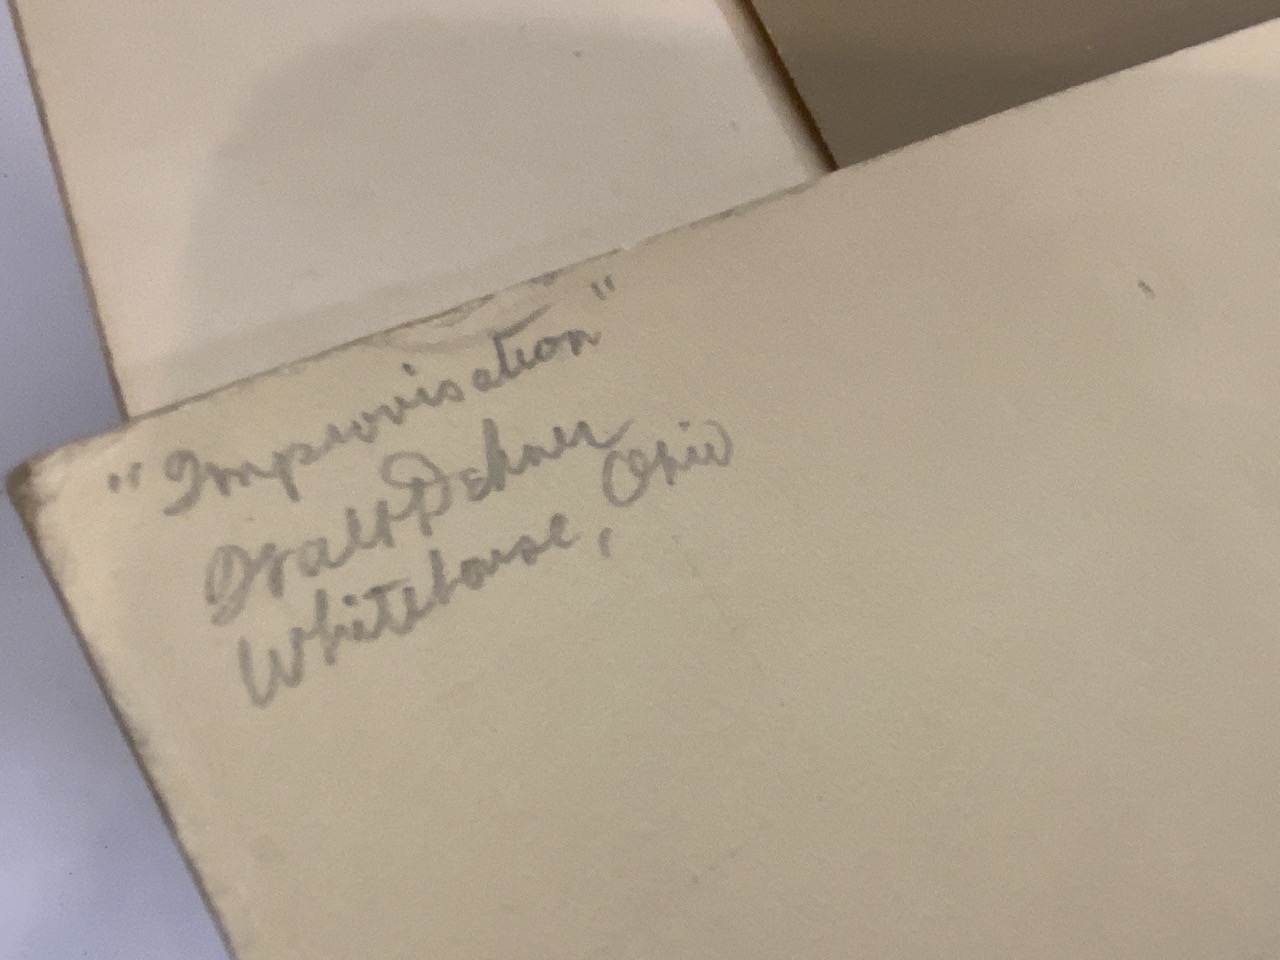 "Improvisation"
Walt Dehner
Whitehouse, Ohio